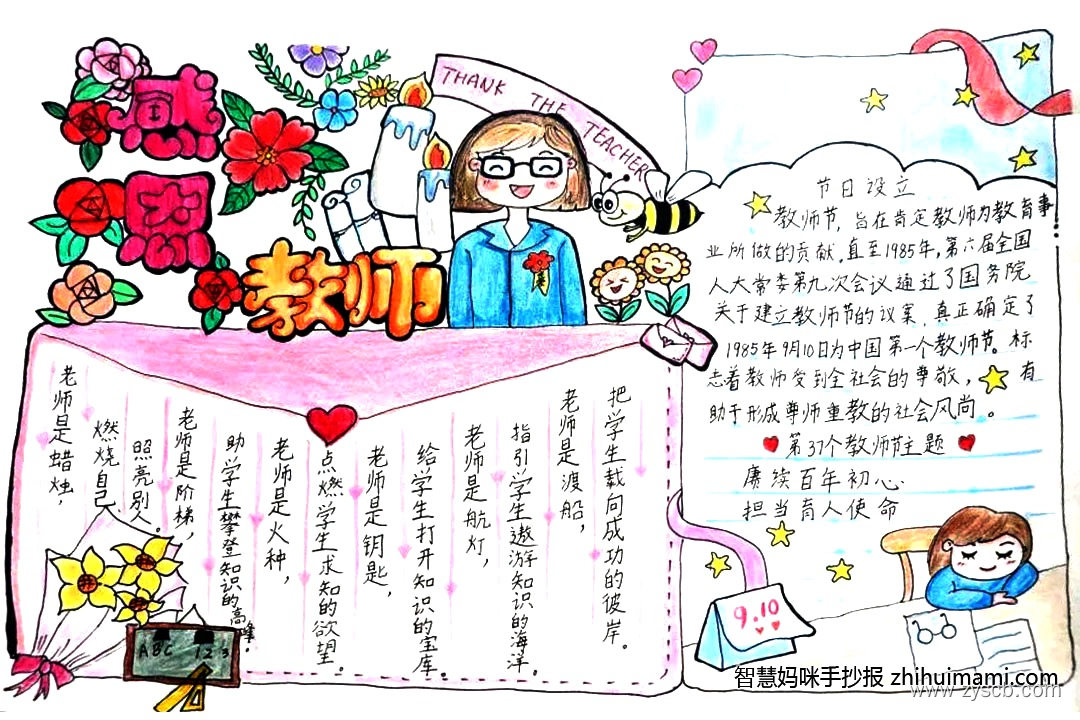 感恩
教师
THANK THE TEACHER
老师是蜡烛，
燃烧自己，
照亮别人。
老师是阶梯，
助学生攀登知识的高峰。
老师是火种，
点燃学生求知的欲望。
老师是钥匙，
给学生打开知识的宝库。
老师是航灯，
指引学生遨游知识的海洋。
老师是渡船，
把学生载向成功的彼岸。
ABC 123
节日设立
教师节，旨在肯定教师为教育事
业所做的贡献，直至1985年，第六届全国
人大常委第九次会议通过了国务院
关于建立教师节的议案，真正确定了
1985年9月10日为中国第一个教师节。标
志着教师受到全社会的尊敬，有
助于形成尊师重教的社会风尚。
第37个教师节主题
赓续百年初心
担当育人使命
9.10
智慧妈咪手抄报 zhihuimami.com
www.zyscb.com